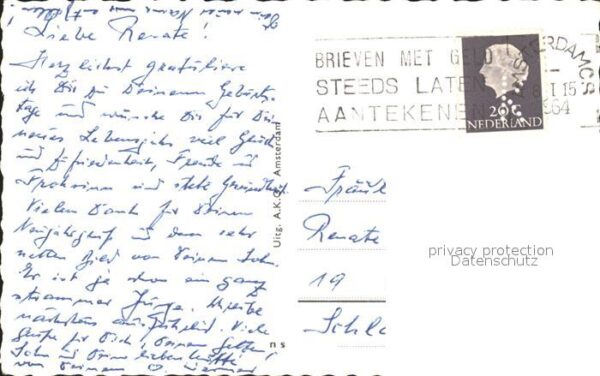 Liebe Renate!
Herzlichst gratuliere
ich Dir zu Deinem Geburts-
tage und wünsche Dir für Dein
neues Lebensjahr viel Glück
und Zufriedenheit, Freude und
Frohsinn und stete Gesundheit
Vielen Dank für Deinen
Neujahrsgruß und dem sehr
netten Bied von Deinem Sohn.
Er ist ja schon ein ganz
strammer Junge. Schreibe
nächstens ausführlich. Viele
Grüße für Dich, Deinen Gatten,
Sohn und Deine lieben
von Deinem
Uitg. A.K. Amsterdam
n s
BRIEVEN MET GELD
STEEDS LATEN
AANTEKENEN
AMSTERDAM C.S.
15
1964
20 c
NEDERLAND
Renate
19
Schl
privacy protection
Datenschutz